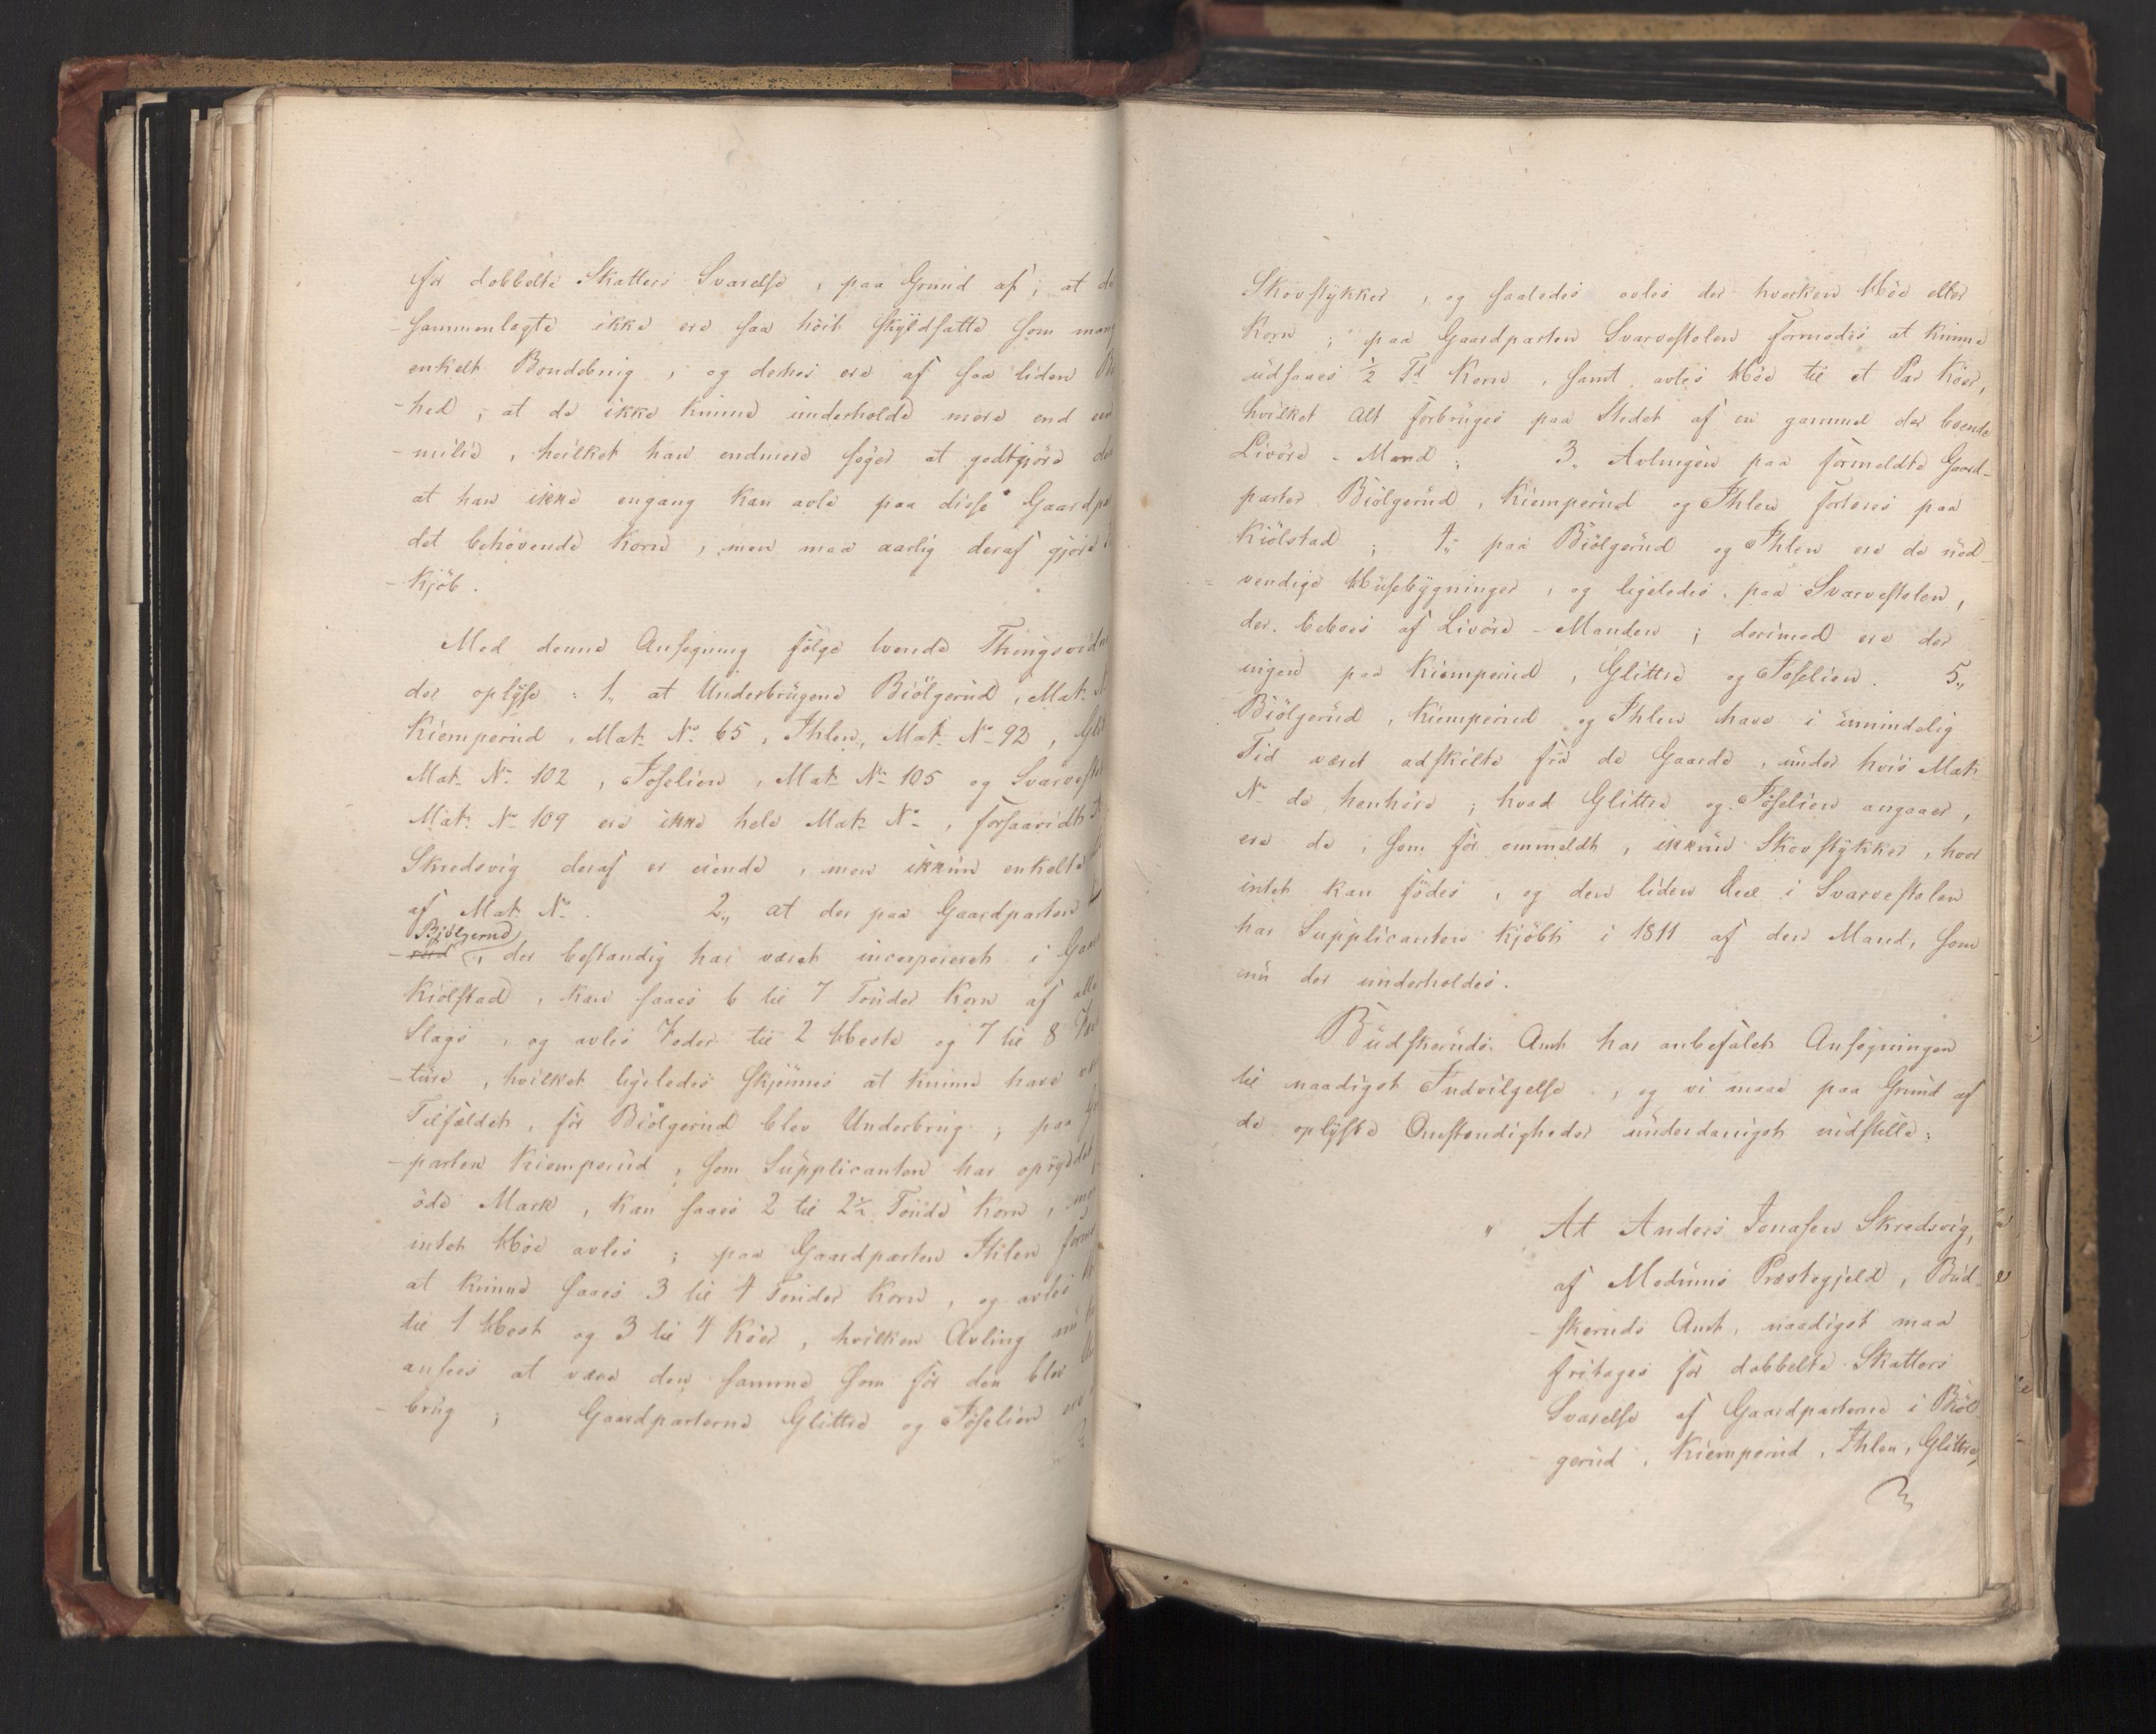 for dobbelte Skatters Svarelse, paa Grund af, at de
sammenlagte ikke ere saa höit skyldsatte som mang
enkelt Bondebrug, og deshos ere af saa liden Be
-hed, at de ikke kunne underholde mere end een
-milie, hvilket han endmere söger at godtgjöre der
at han ikke engang kan avle paa disse Gaardpa
det behövende Korn, men maa aarlig deraf gjöre
-Kjöb.
Med denne Ansögning fölge tvende Thingsvidn
der oplyse: 1, at Underbrugene Biölgerud, Mat. N
Kiemperud, Mat. No. 65, Ihlen, Mat. No. 92, Glit
Mat. No. 102, Ioselien, Mat. No. 105 og Svarvesto
Mat. No. 109 ere ikke hele Mat. No., forsaavidt
Skredsvig deraf er eiende, men ikkun enkelte
af Mat. No. 2,, at der paa Gaardparten
Biölgerud
-rud, der bestandig har været incorporeret i Gaar
Kiölstad, kan saaes 6 til 7 Tönder Korn af alle
Slags, og avles Foder til 2 Heste og 7 til 8
-ture, hvilket ligeledes skjönnes at kunne have
Tilfældet, för Biölgerud blev Underbrug; paa
-parten Kiemperud, som Supplicanten har opryddet
öde Mark, kan saaes 2 til 2½ Tönde Korn,
intet Höe avles; paa Gaardparten Ihlen formo
at kunne saaes 3 til 4 Tönder Korn, og avles
til 1 Hest og 3 til 4 Köer, hvilken Avling nu
ansees at være den samme som för den blev
-brug; Gaardparterne Glittre og Ioselien ere
Skovstykker, og saaledes avles der hverken Höe eller
Korn; paa Gaardparten Svarvestolen formodes at kunne
udsaaes ½ Td Korn, samt avles Höe til et Par Köer,
hvilket Alt forbruges paa Stedet af en gammel der boende
Livöre-Mand; 3,, Avlingen paa formeldte Gaard-
parter Biölgerud, Kiemperud og Ihlen forteres paa
Kiölstad; 4,, paa Biölgerud og Ihlen ere de nöd
-vendige Huusebygninger, og ligeledes paa Svarvestolen,
der beboes af Livöre-Manden; derimod ere der
ingen paa Kiemperud, Glittre og Ioselien. 5,,
Biölgerud, Kiemperud og Ihlen have i umindelig
Tid været adskilte fra de Gaarde, under hvis Mat.
No. de henhöre; hvad Glittre og Ioselien angaaer,
ere de, som för ommeldt, ikkun Skovstykker, hvor
intet kan födes, og den liden Deel i Svarvestolen
har Supplicanten kjöbt i 1811 af den Mand, som
nu der underholdes.
Budskeruds Amt har anbefalet Ansögningen
til naadigst Indvilgelse, og vi maae paa Grund af
de oplyste Omstændigheder underdanigst indstille:
" At Anders Jonasen Skredsvig,
af Modums Præstegjeld, Bud-
-skeruds Amt, naadigst maa
fritages for dobbelte Skatters
Svarelse af Gaardparterne i Biöl
-gerud, Kiemperud, Ihlen, Glittre,